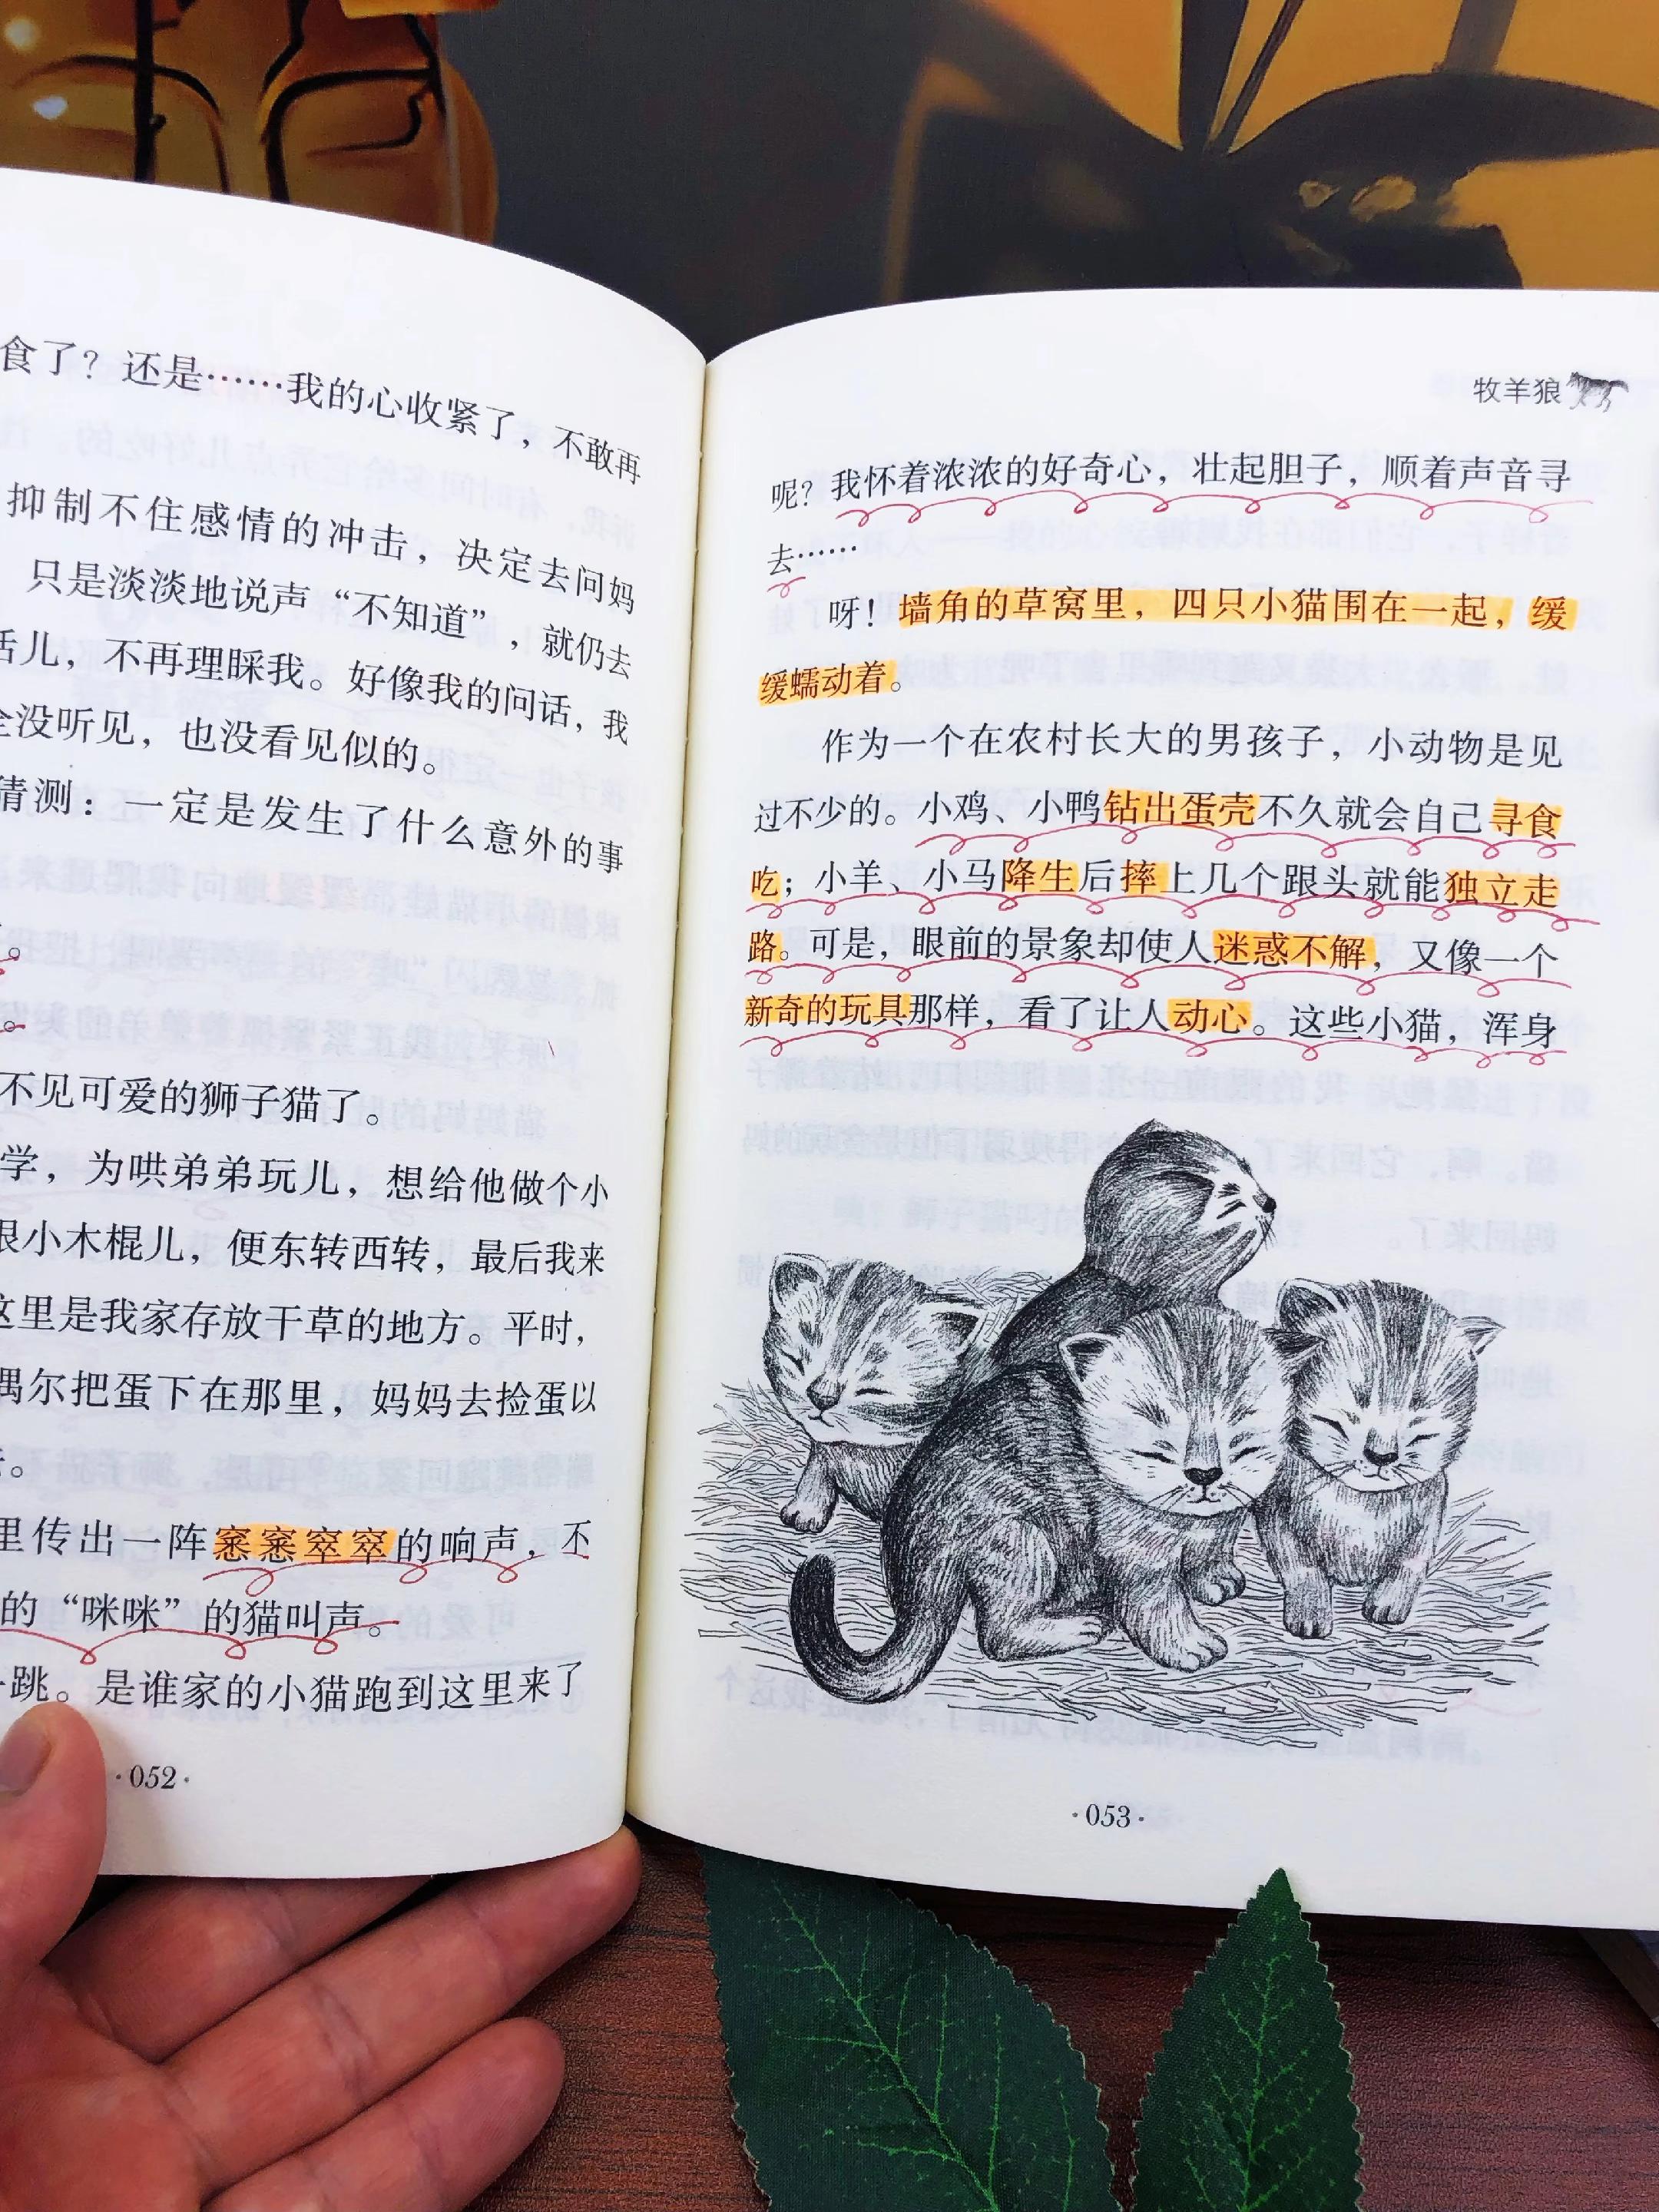 食了？还是……我的心收紧了，不敢再
抑制不住感情的冲击，决定去问妈
只是淡淡地说声“不知道”，就仍去
活儿，不再理睬我。好像我的问话，我
全没听见，也没看见似的。
猜测：一定是发生了什么意外的事
。
。
不见可爱的狮子猫了。
学，为哄弟弟玩儿，想给他做个小
根小木棍儿，便东转西转，最后我来
这里是我家存放干草的地方。平时，
偶尔把蛋下在那里，妈妈去捡蛋以
。
里传出一阵窸窸窣窣的响声，不
的“咪咪”的猫叫声。
跳。是谁家的小猫跑到这里来了
·052·
牧羊狼
呢？我怀着浓浓的好奇心，壮起胆子，顺着声音寻
去……
呀！墙角的草窝里，四只小猫围在一起，缓
缓蠕动着。
作为一个在农村长大的男孩子，小动物是见
过不少的。小鸡、小鸭钻出蛋壳不久就会自己寻食
吃；小羊、小马降生后摔上几个跟头就能独立走
路。可是，眼前的景象却使人迷惑不解，又像一个
新奇的玩具那样，看了让人动心。这些小猫，浑身
·053·